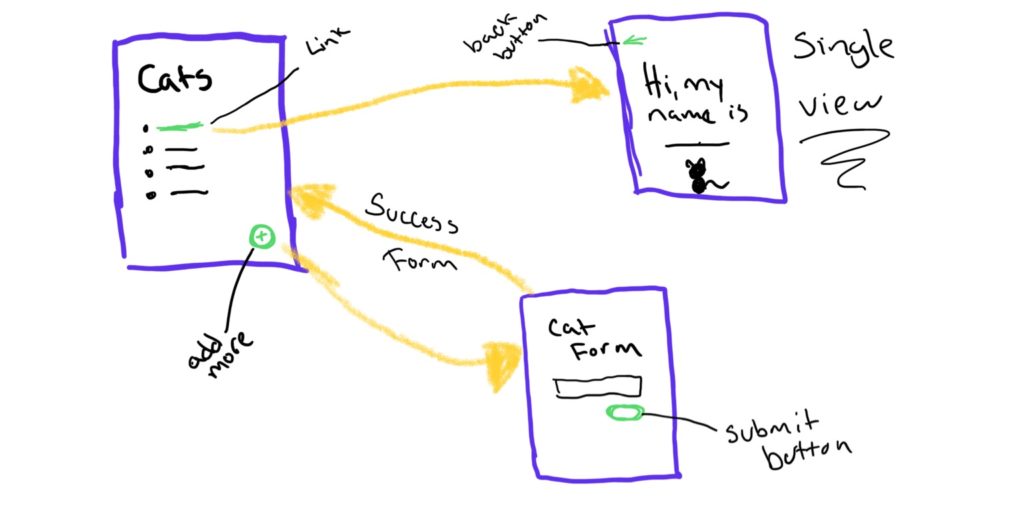 Cats
Link
add
more
back
button
Hi, my
name is
Single
view
Success
Form
Cat
Form
submit
button